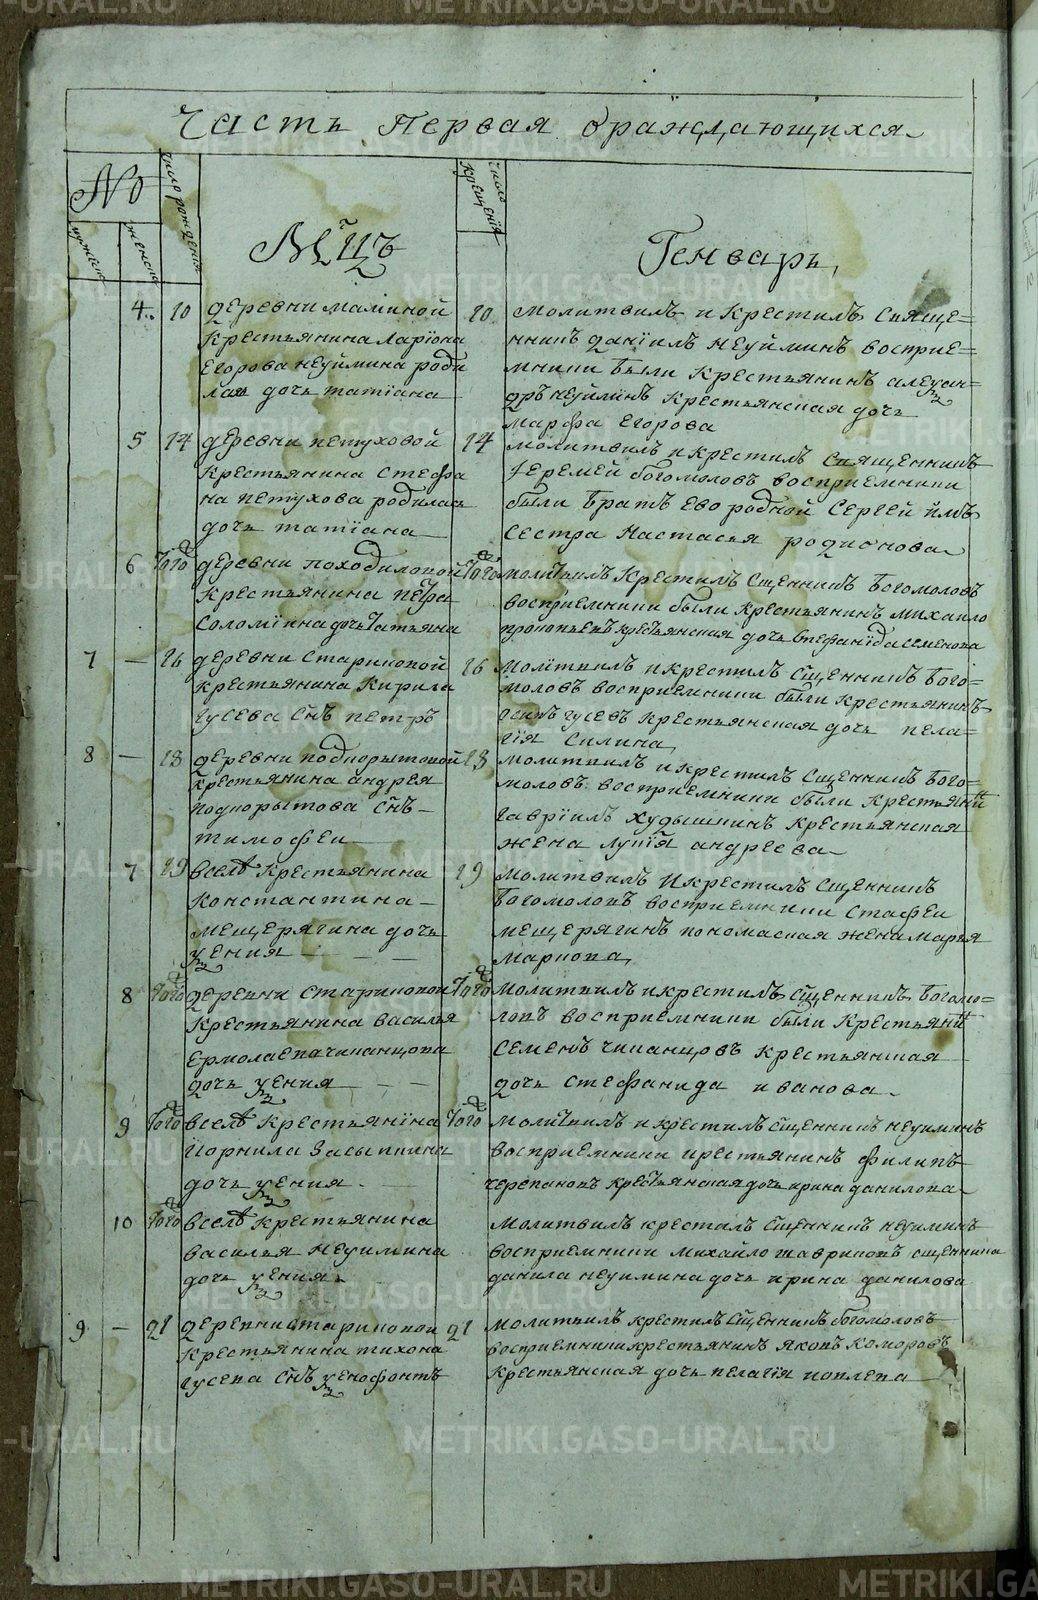 Часть первая ораждающихся
№
мужеска
женска
число рождения
Мцъ
число крещения
Генварь
4 10 деревни малиной
крестьянина Лариона
Егорова неуймина роди
лась дочь татиана
10 молитвилъ и крестилъ свяще=
нникъ даніилъ неуйминъ восприе=
мники были крестьянинъ алеѯан=
дръ неуйминъ крестьянская дочь
марфа Егорова
5 14 деревни петуховой
крестьянина стефа
на петухова родилась
дочь татіана
14 молитвилъ и крестилъ священникъ
Иеремей богомоловъ восприемники
были братъ ево родной Сергей
сестра настасья родионова
6 того деревни походиловой
крестьянина петра
соломіина дочь татьяна
того молитвилъ крестилъ сщенникъ богомоловъ
восприемники были крестьянинъ михаило
прокопьевъ крестьянская дочь степанида семенова
7 — 16 деревни стариковой
крестьянина кирила
гусева снъ петръ
16 молитвилъ и крестилъ сщенникъ бого=
моловъ восприемники были крестьянинъ
осипъ гусевъ крестьянская дочь пела=
гія силина
8 — 18 деревни подкорытовой
крестьянина андрея
подкорытова снъ
тимофеи
18 молитвилъ и крестилъ сщенникъ бого=
моловъ восприемники были крестьянинъ
гавріилъ худышкинъ крестьянская
жена лукія андреева
7 19 вселѣ крестьянина
константина
мещерягина дочь
ѯения
19 молитвилъ и крестилъ сщенникъ
богомоловъ восприемники стафеи
мещерягинъ пономаская жена марья
маркова
8 того деревни стариковой
крестьянина василья
ермолаева чипанцова
дочь ѯения
того молитвилъ и крестилъ сщенникъ богомо=
ловъ восприемники были крестьянинъ
семенъ чипанцовъ крестьянская
дочь стефанида иванова
9 того вселѣ крестьянина
корнила засыпкина
дочь ѯения
того молитвилъ и крестилъ сщенникъ неуиминъ
восприемники крестьянинъ филипъ
черепановъ крестьянская дочь ирина данилова
10 того вселѣ крестьянина
василья неуимина
дочь ѯения
молитвилъ крестилъ сщенникъ неуиминъ
восприемники михайло гавриловъ сщенника
данила неуимина дочь ирина данилова
9 — 21 деревни стариковой
крестьянина тихона
гусева снъ ѯенофонтъ
21 молитвилъ крестилъ сщенникъ богомоловъ
восприемники крестьянинъ яковъ комаровъ
крестьянская дочь пелагія иовлева
METRIKI.GASO-URAL.RU